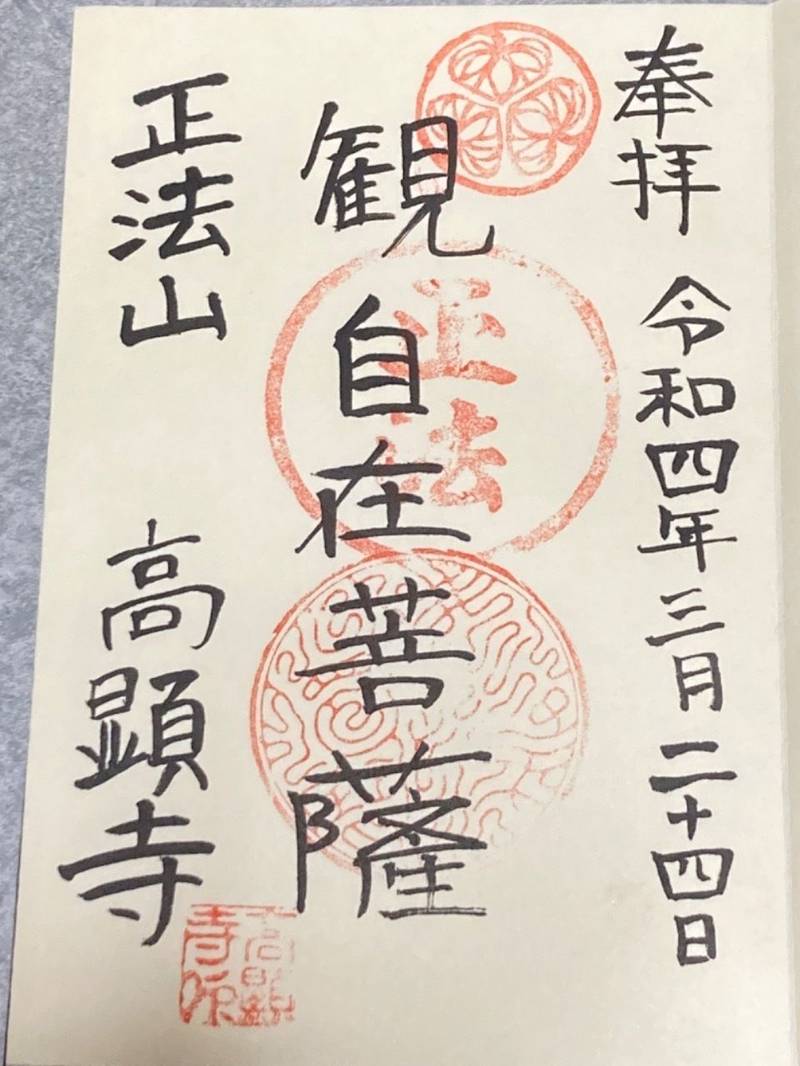 奉拝 令和四年三月二十四日
観自在菩薩
正法
正法山 高顕寺